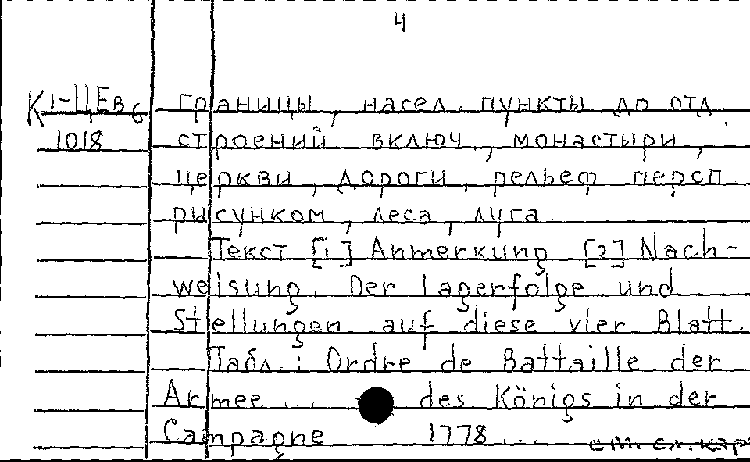 4
К 1-ЦЕв 6 границы, насел. пункты до отд.
1018 строений включ., монастыри,
церкви, дороги, рельеф персп.
рисунком, леса, луга
Текст [1] Anmerkung [2] Nach-
weisung. Der Lagerfolge und
Stellungen auf diese vier Blatt.
Табл.: Ordre de Battaille der
Armee ... des Königs in der
Campagne 1778 ... см. сл. карт